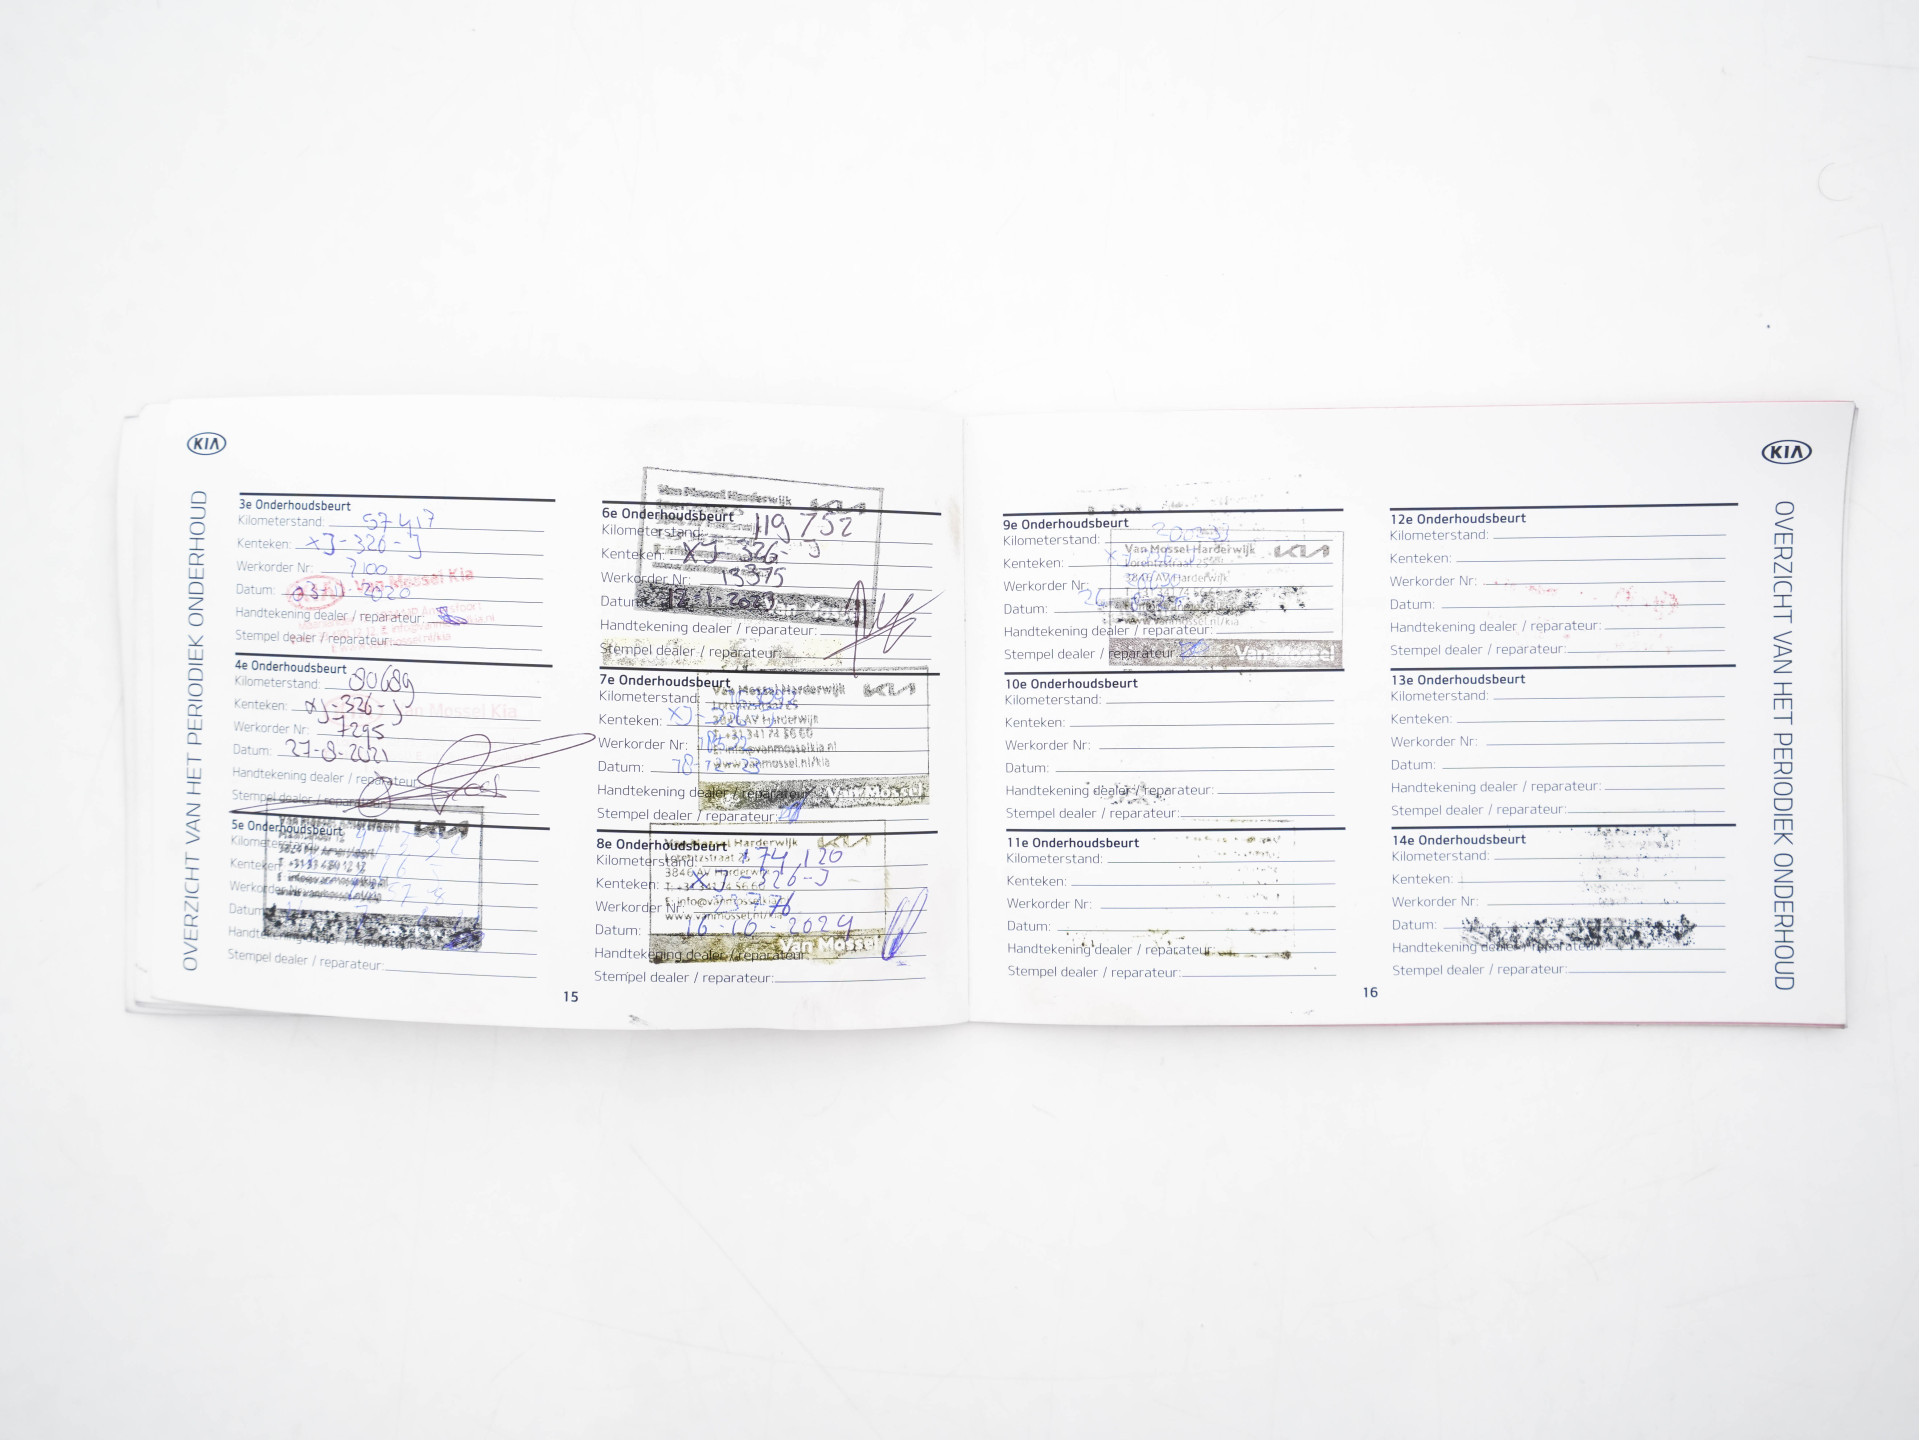 KIA
OVERZICHT VAN HET PERIODIEK ONDERHOUD
3e Onderhoudsbeurt
Kilometerstand: 57417
Kenteken: XJ-326-J
Werkorder Nr: 7100
Datum: 03-11-2020
Van Mossel Kia
Handtekening dealer / reparateur:
Stempel dealer / reparateur:
4e Onderhoudsbeurt
Kilometerstand: 80689
Kenteken: XJ-326-J
Van Mossel Kia
Werkorder Nr: 7295
Datum: 27-8-2021
Handtekening dealer / reparateur:
Stempel dealer / reparateur:
5e Onderhoudsbeurt
Kilometerstand:
Kenteken:
Werkorder
Datum
Handtekening dealer / reparateur:
Stempel dealer / reparateur:
Van Mossel Harderwijk KIA
6e Onderhoudsbeurt
Kilometerstand: 119 752
Kenteken: XJ-326-J
Werkorder Nr: 13375
Datum: 12 1 2023
Van Mossel
Handtekening dealer / reparateur:
Stempel dealer / reparateur:
7e Onderhoudsbeurt
Van Mossel Harderwijk KIA
Lorentzstraat 25
3846 AV Harderwijk
T. +31 341 74 56 60
E. info@vanmosselkia.nl
www.vanmossel.nl/kia
Van Mossel
Kilometerstand:
Kenteken: XJ-326-J
Werkorder Nr:
Datum: 18-12-23
Handtekening dealer / reparateur:
Stempel dealer / reparateur:
8e Onderhoudsbeurt
Van Mossel Harderwijk KIA
Lorentzstraat 25
3846 AV Harderwijk
T. +31 341 74 56 60
E. info@vanmosselkia
www.vanmossel.nl/kia
Van Mossel
Kilometerstand: 174,120
Kenteken: XJ-326-J
Werkorder Nr: 23776
Datum: 16-10-2024
Handtekening dealer / reparateur:
Stempel dealer / reparateur:
15
9e Onderhoudsbeurt
Kilometerstand:
Van Mossel Harderwijk KIA
Lorentzstraat 25
3846 AV Harderwijk
www.vanmossel.nl/kia
Van Mossel
Kenteken:
Werkorder Nr:
Datum:
Handtekening dealer / reparateur:
Stempel dealer / reparateur
10e Onderhoudsbeurt
Kilometerstand:
Kenteken:
Werkorder Nr:
Datum:
Handtekening dealer / reparateur:
Stempel dealer / reparateur:
11e Onderhoudsbeurt
Kilometerstand:
Kenteken:
Werkorder Nr:
Datum:
Handtekening dealer / reparateur:
Stempel dealer / reparateur:
12e Onderhoudsbeurt
Kilometerstand:
Kenteken:
Werkorder Nr:
Datum:
Handtekening dealer / reparateur:
Stempel dealer / reparateur:
13e Onderhoudsbeurt
Kilometerstand:
Kenteken:
Werkorder Nr:
Datum:
Handtekening dealer / reparateur:
Stempel dealer / reparateur:
14e Onderhoudsbeurt
Kilometerstand:
Kenteken:
Werkorder Nr:
Datum:
Handtekening dealer / reparateur:
Stempel dealer / reparateur:
16
KIA
OVERZICHT VAN HET PERIODIEK ONDERHOUD